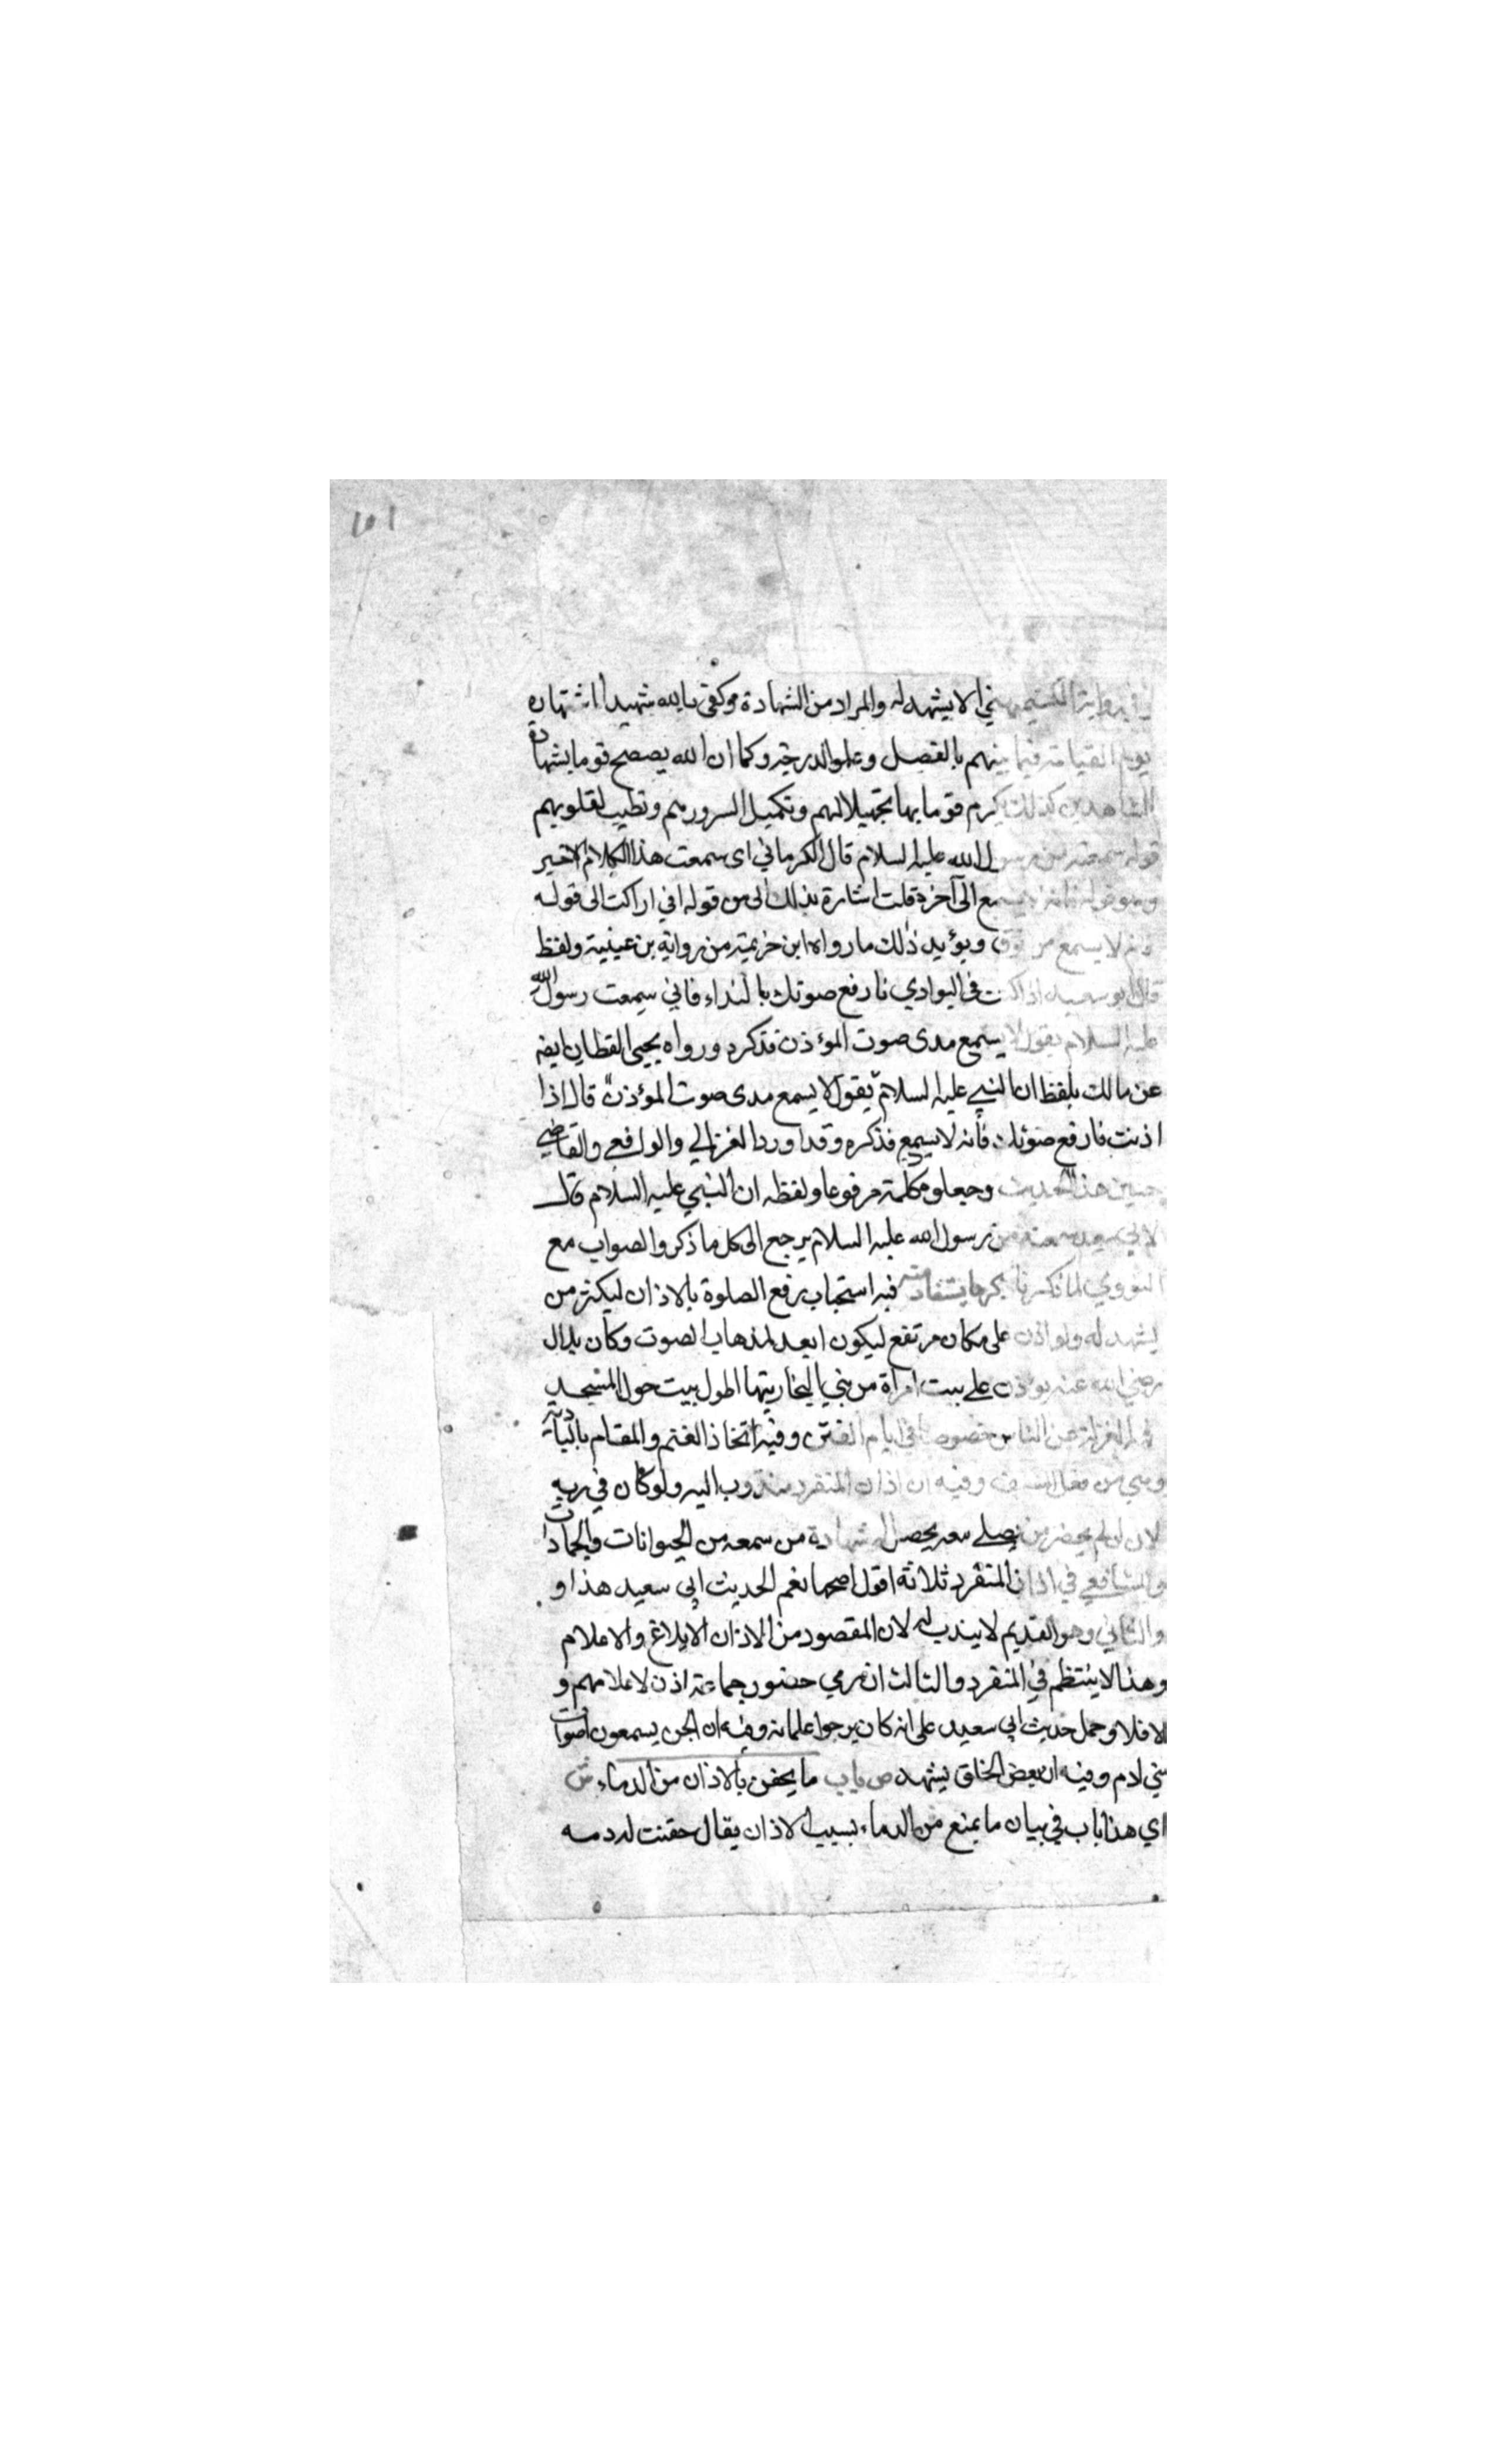 ١٥١
في رواية الكشميهني الا يشهد له والمراد من الشهادة وكفى بالله شهيدا اشتهاره
يوم القيامة فيما بينهم بالفصل وعلو الدرجة وكما ان الله يصصح قوما بشهادة
الشاهدين كذلك يكرم قوما بها تجميلا لهم وتكميل السرورهم وتطيب لقلوبهم
قوله سمعته من رسول الله عليه السلام قال الكرماني اى سمعت هذا الكلام الاخير
وهو قوله فانه لا يسمع الى آخره قلت اشارة بذلك الى من قوله اني اراكت الى قوله
فانه لا يسمع من فوق ويؤيد ذلك ما رواه ابن خزيمة من رواية بن عيينية ولفظ
قال ابو سعيد اذا كنت في البوادي فارفع صوتك بالنداء فاني سمعت رسول الله
عليه السلام يقول لا يسمع مدى صوت المؤذن فذكره ورواه يحيى القطان ايضه
عن مالك بلفظ ان النبي عليه السلام يقول لا يسمع مدى صوت المؤذن قال اذا
اذنت فارفع صوتك فأنه لا يسمع فذكره وقد اورد الغزالي والرافعي والقاضي
حسين هذا الحديث وجعلو مكلمة مرفوعا ولفظه ان النبي عليه السلام قال
لابي سعيد سمعته من رسول الله عليه السلام يرجع الى كل ما ذكر والصواب مع
النووي لما ذكرنا ذكر ما يستفاد منه فيه استحباب رفع الصلوة بالاذان ليكثر من
يشهد له ولو اذن على مكان مرتفع ليكون ابعد لذهاب الصوت وكان بلال
رضي الله عنه يؤذن على بيت امراة من بني النجار بيتها اطول بيت حول المسجد
فيه العزلة عن الناس خصوصا في ايام الفتن وفيه اتخاذ الغنم والمقام بالبادية
وهي من فعل السلف وفيه ان اذان المنفرد مندوب اليه ولو كان في برية
لان لم يحضر من يصلي معه يحصل له شهادة من سمعه من الحيوانات والجمادات
وللشافعي في اذان المنفرد ثلاثة اقول اصحها نعم لحديث ابي سعيد هذا و
والثاني وهو القديم لا يندب له لان المقصود من الاذان الابلاغ والاعلام
وهذا لا ينتظم في المنفرد والثالث ان رجي حضور جماعة اذن لاعلامهم و
الا فلا وحمل حديث ابي سعيد على انه كان يرجوا غلمانه وفيه ان الجن يسمعون اصوات
بني ادم وفيه ان بعض الخلق يشهد ص باب ما يحقن بالاذان من الدماء ش
اي هذا باب في بيان ما يمنع من الدماء بسبب الاذان يقال حقنت له دمه